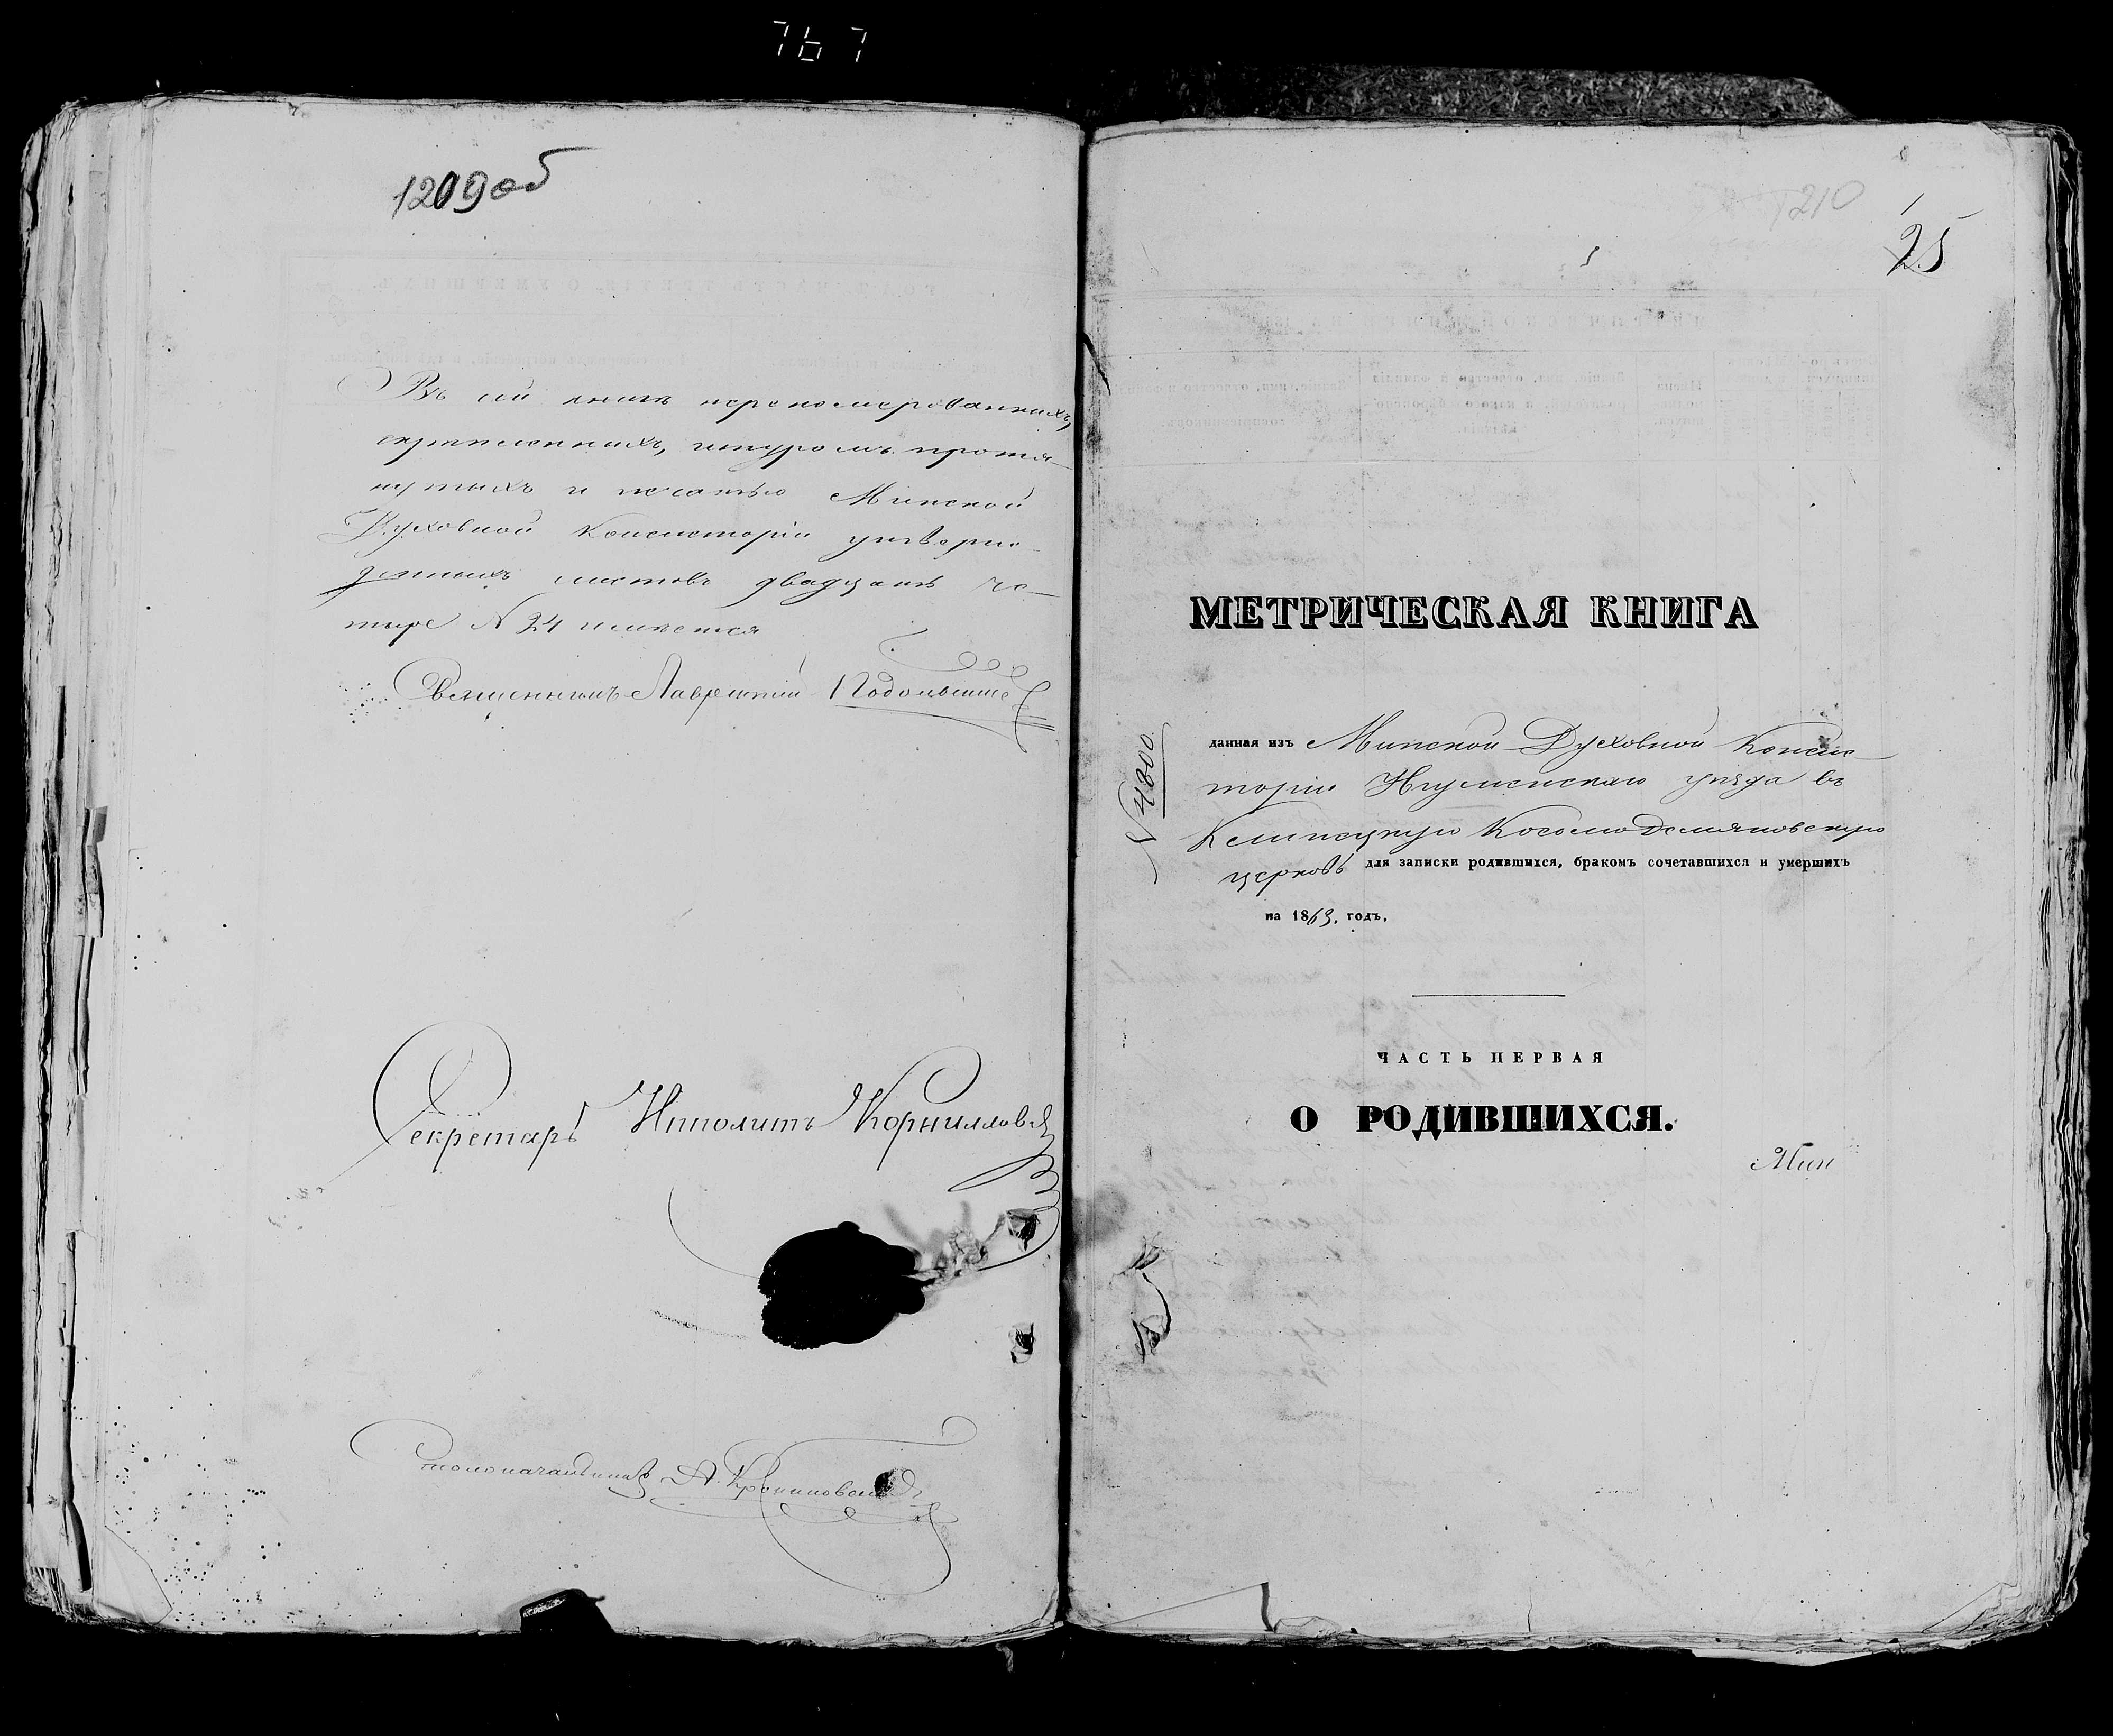 767
1209об
Въ сей книгѣ перенумерованныхъ,
скрѣпленныхъ, шнуромъ протя-
нутыхъ и печатью Минской
Духовной Консисторіи утверж-
денныхъ листовъ двадцать че-
тыре N 24 имѣется
Священникъ Лаврентій
Секретарь Ипполитъ
Столоначальникъ А.
1210
25
МЕТРИЧЕСКАЯ КНИГА
N 4800
данная изъ Минской Духовной Консис-
торіи Игуменскаго уѣзда въ
Космо Демьяновскую
церковь для записки родившихся, бракомъ сочетавшихся и умершихъ
на 1863. годъ.
ЧАСТЬ ПЕРВАЯ
О РОДИВШИХСЯ.
Мин